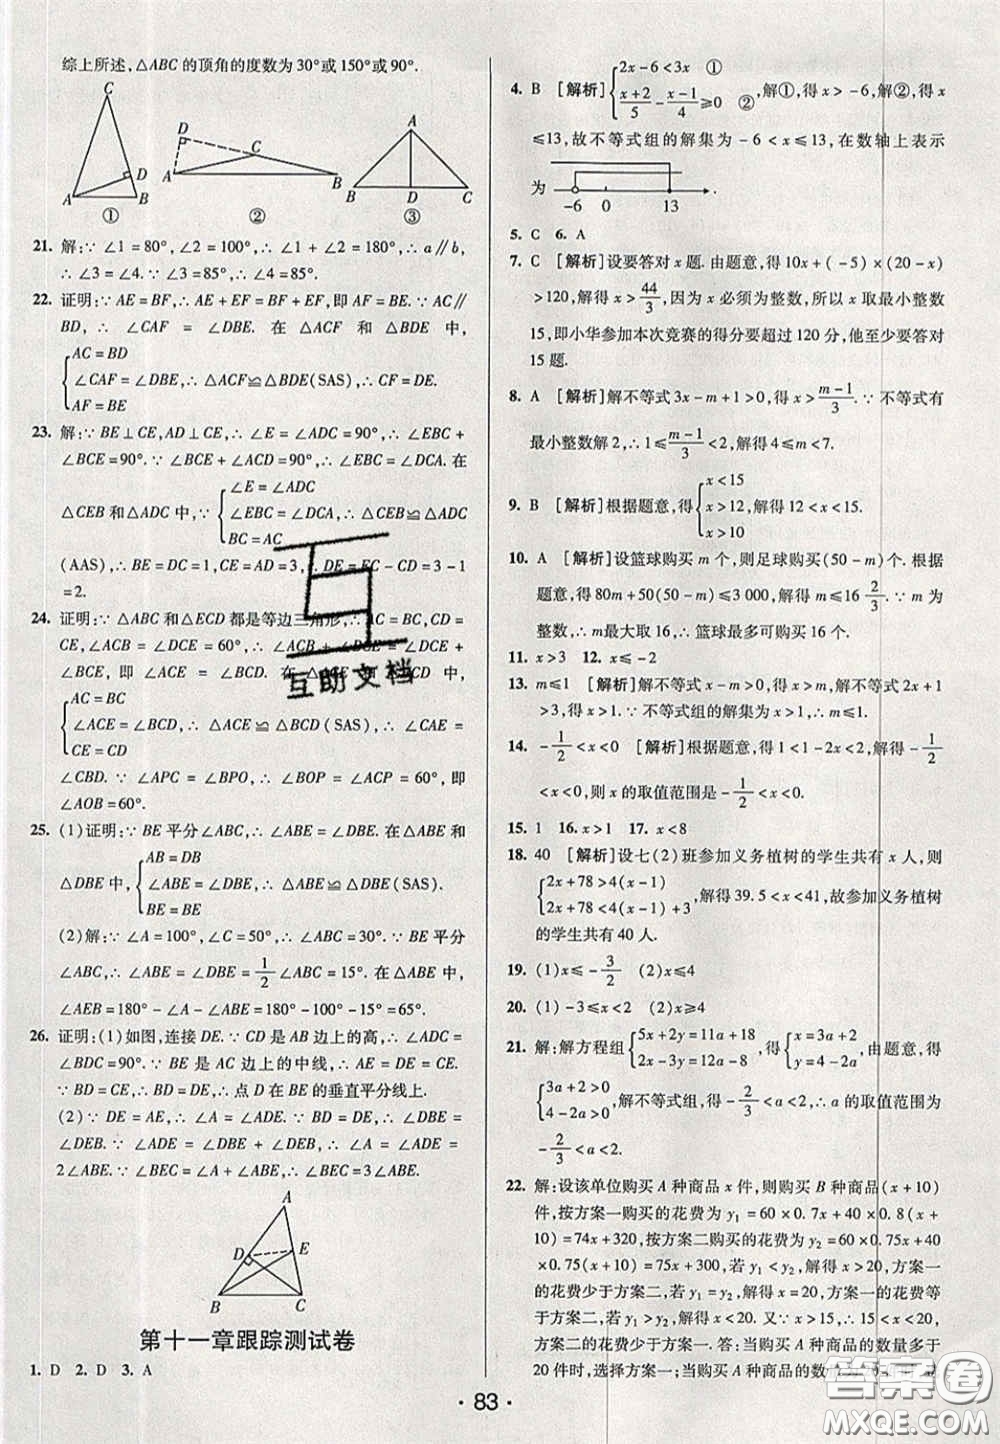 综上所述,△ABC的顶角的度数为30°或150°或90°.
C
D
A B
①
D
C
A B
②
A
B D C
③
21. 解:∵∠1=80°,∠2=100°,∴∠1+∠2=180°,∴a∥b,
∴∠3=∠4.∵∠3=85°,∴∠4=85°.
22. 证明:∵AE=BF,∴AE+EF=BF+EF,即AF=BE.∵AC∥
BD,∴∠CAF=∠DBE.在△ACF和△BDE中,
AC=BD
∠CAF=∠DBE,∴△ACF≌△BDE(SAS),∴CF=DE.
AF=BE
23. 解:∵BE⊥CE,AD⊥CE,∴∠E=∠ADC=90°,∴∠EBC+
∠BCE=90°.∵∠BCE+∠ACD=90°,∴∠EBC=∠DCA.在
△CEB和△ADC中,∵{∠E=∠ADC
∠EBC=∠DCA,∴△CEB≌△ADC
BC=AC
(AAS),∴BE=DC=1,CE=AD=3,∴DE=EC-CD=3-1
=2.
24. 证明:∵△ABC和△ECD都是等边三角形,∴AC=BC,CD=
CE,∠ACB=∠DCE=60°,∴∠ACB+∠DCE=∠DCE+
∠BCE,即∠ACE=∠BCD.在△ACE和△BCD中,
AC=BC
∠ACE=∠BCD,∴△ACE≌△BCD(SAS),∴∠CAE=
CE=CD
∠CBD.∵∠APC=∠BPO,∴∠BOP=∠ACP=60°,即
∠AOB=60°.
25. (1)证明:∵BE平分∠ABC,∴∠ABE=∠DBE.在△ABE和
△DBE中,{AB=DB
∠ABE=∠DBE,∴△ABE≌△DBE(SAS).
BE=BE
(2)解:∵∠A=100°,∠C=50°,∴∠ABC=30°.∵BE平分
∠ABC,∴∠ABE=∠DBE=1/2∠ABC=15°.在△ABE中,
∠AEB=180°-∠A-∠ABE=180°-100°-15°=65°.
26. 证明:(1)如图,连接DE.∵CD是AB边上的高,∴∠ADC=
∠BDC=90°.∵BE是AC边上的中线,∴AE=CE,∴DE=CE.
∵BD=CE,∴BD=DE,∴点D在BE的垂直平分线上.
(2)∵DE=AE,∴∠A=∠ADE.∵BD=DE,∴∠DBE=
∠DEB.∵∠ADE=∠DBE+∠DEB,∴∠A=∠ADE=
2∠ABE.∵∠BEC=∠A+∠ABE,∴∠BEC=3∠ABE.
A
D E
B C
第十一章跟踪测试卷
1. D 2. D 3. A
4. B [解析]{2x-6<3x ①
(x+2)/5-(x-1)/4≥0 ②,解①,得x>-6,解②,得x
≤13,故不等式组的解集为-6<x≤13,在数轴上表示
为
-6 0 13.
5. C 6. A
7. C [解析]设要答对x题.由题意,得10x+(-5)×(20-x)
>120,解得x>44/3,因为x必须为整数,所以x取最小整数
15,即小华参加本次竞赛的得分要超过120分,他至少要答对
15题.
8. A [解析]解不等式3x-m+1>0,得x>(m-1)/3.∵不等式有
最小整数解2,∴1≤(m-1)/3<2,解得4≤m<7.
9. B [解析]根据题意,得{x<15
x>12,解得12<x<15.
x>10
10. A [解析]设篮球购买m个,则足球购买(50-m)个.根据
题意,得80m+50(50-m)≤3 000,解得m≤16 2/3.∵m为
整数,∴m最大取16,∴篮球最多可购买16个.
11. x>3 12. x≤-2
13. m≤1 [解析]解不等式x-m>0,得x>m,解不等式2x+1
>3,得x>1.∵不等式组的解集为x>1,∴m≤1.
14. -1/2<x<0 [解析]根据题意,得1<1-2x<2,解得-1/2
<x<0,则x的取值范围是-1/2<x<0.
15. 1 16. x>1 17. x<8
18. 40 [解析]设七(2)班参加义务植树的学生共有x人,则
{2x+78>4(x-1)
2x+78<4(x-1)+3,解得39.5<x<41,故参加义务植树
的学生共有40人.
19. (1)x≤-3/2 (2)x≤4
20. (1)-3≤x<2 (2)x≥4
21. 解:解方程组{5x+2y=11a+18
2x-3y=12a-8,得{x=3a+2
y=4-2a,由题意,得
{3a+2>0
4-2a>0,解不等式组,得-2/3<a<2,∴a的取值范围为
-2/3<a<2.
22. 解:设该单位购买A种商品x件,则购买B种商品(x+10)
件,按方案一购买的花费为y₁=60×0.7x+40×0.8(x+
10)=74x+320,按方案二购买的花费为y₂=60×0.75x+40
×0.75(x+10)=75x+300,若y₁<y₂,解得x>20,方案一
的花费少于方案二,若y₁=y₂,解得x=20,方案一的花费等于
方案二,若y₁>y₂,解得x<20,∵x>0,∴此时0<x<20,方案
二的花费少于方案一.答:当购买A种商品的数量多于
20件时,选择方案一;当购买A种商品的数
· 83 ·
互助文档
答案圈
MXQE.COM